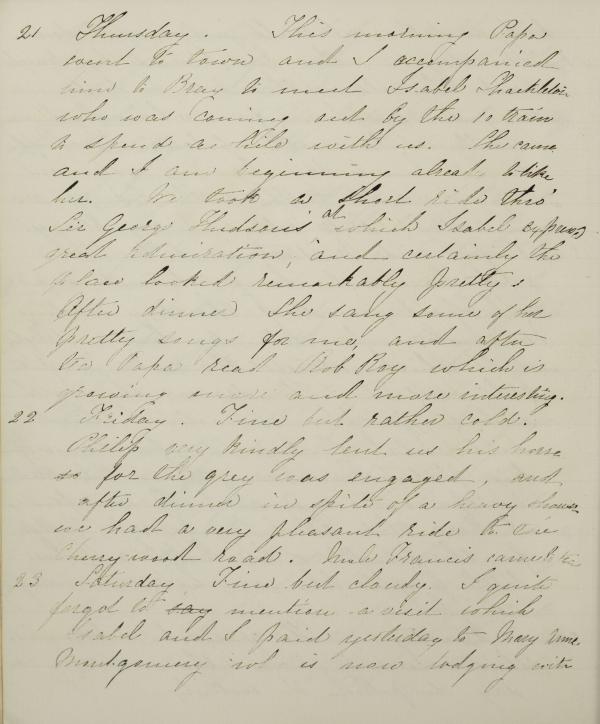 21 Thursday. This morning Papa
went to town and I accompanied
him to Bray to meet Isabel Shackleton
who was coming out by the 10 train
to spend a while with us. She came
and I am beginning already to like
her. We took a short ride thro'
Sir George Hudson's at which Isabel expressed
great admiration, and certainly the
place looked remarkably pretty.
After dinner she sang some of her
pretty songs for me, and after
tea Papa read Rob Roy which is
growing more and more interesting.
22 Friday. Fine but rather cold.
Philip very kindly lent us his horse
for the grey was engaged, and
after dinner in spite of a heavy shower
we had a very pleasant ride to
Cherrywood road. Francis came to tea
23 Saturday Fine but cloudy. I quite
forgot to say mention a visit which
Isabel and I paid yesterday to Mary Anne
Montgomery wh is now lodging with